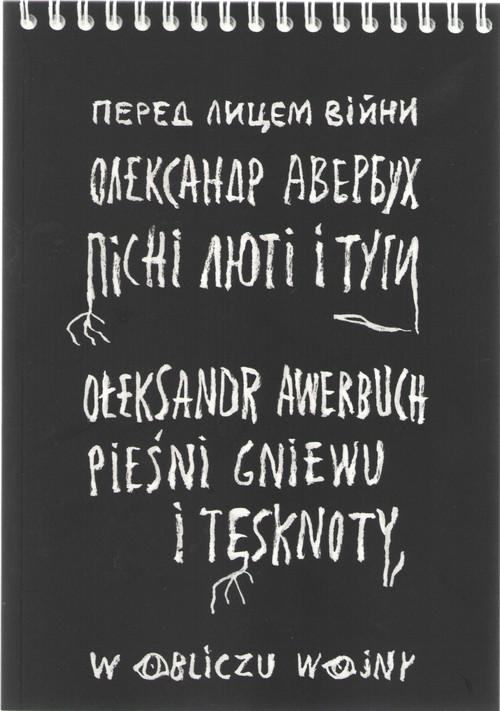 ПЕРЕД ЛИЦЕМ ВіЙНИ
ОЛЕКСАНДР АВЕРБУХ
ПіСНі ЛЮТі і ТУГИ
OŁEKSANDR AWERBUCH
PIEŚNI GNIEWU
i TĘSKNOTY,
W OBLICZU WOJNY